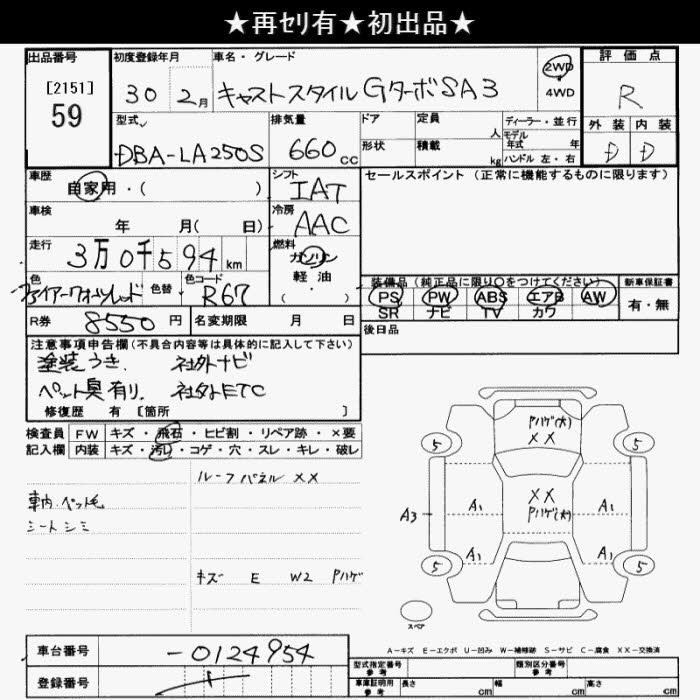 ★再セリ有★初出品★
出品番号
[2151]
59
初度登録年月
30 2月
車名・グレード
キャストスタイル GターボSA3
2WD
4WD
評価点
R
型式
DBA-LA250S
排気量
660cc
ドア
形状
定員 人
積載 kg
ディーラー・並行
モデル年式 年
ハンドル 左・右
外装 内装
D D
車歴
自家用・( )
シフト
IAT
セールスポイント(正常に機能するものに限ります)
車検
年 月( 日)
冷房
AAC
走行
3万0千594km
燃料
ガソリン
軽・油
( ・ )
色
色替
色コード
R67
装備品(純正品に限り○をつけてください)
PS PW ABS エアB AW
SR ナビ TV カワ
新車保証書
有・無
R券 8550円
名変期限 月 日
後日品
注意事項申告欄(不具合内容等は具体的に記入して下さい)
塗装うき 社外ナビ
ペット臭有り. 社外ETC
修復歴 有 [箇所 ]
検査員 FW キズ・飛石・ヒビ割・リペア跡・×要
記入欄 内装 キズ・汚れ・コゲ・穴・スレ・キレ・破レ
ルーフパネル XX
車内ペット毛
シートシミ
キズ E W2 Pハゲ
Pハゲ(大)
XX
5 5
A1 XX A1
Pハゲ(大)
A3
A1 A1
5 5
スペア
A-キズ E-エクボ U-凹み W-補修跡 S-サビ C-腐食 XX-交換済
車台番号 -0124954
登録番号
型式指定番号 参考
類別区分番号 参考
車庫証明用 参考
長さ cm 幅 cm 高さ cm